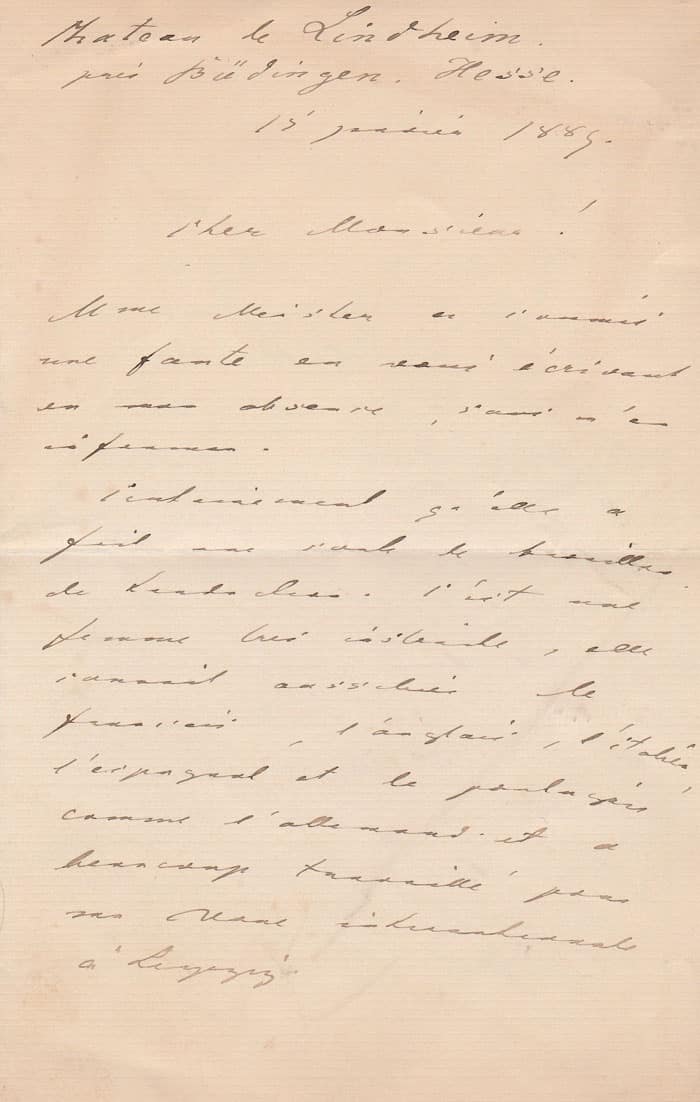 Chateau de Lindheim.
près Büdingen. Hesse.
15 janvier 1889.
Cher Monsieur!
Mme Meister a commis
une faute en vous écrivant
en mon absence, sans m'en
informer.
Certainement qu'elle a
fait une sorte de travaux
de traducteur. C'est une
femme très instruite, elle
connait aussi bien le
français, l'anglais, l'italien,
l'espagnol et le portugais
comme l'allemand et a
beaucoup travaillé pour
ma Revue internationale
à Leipzig